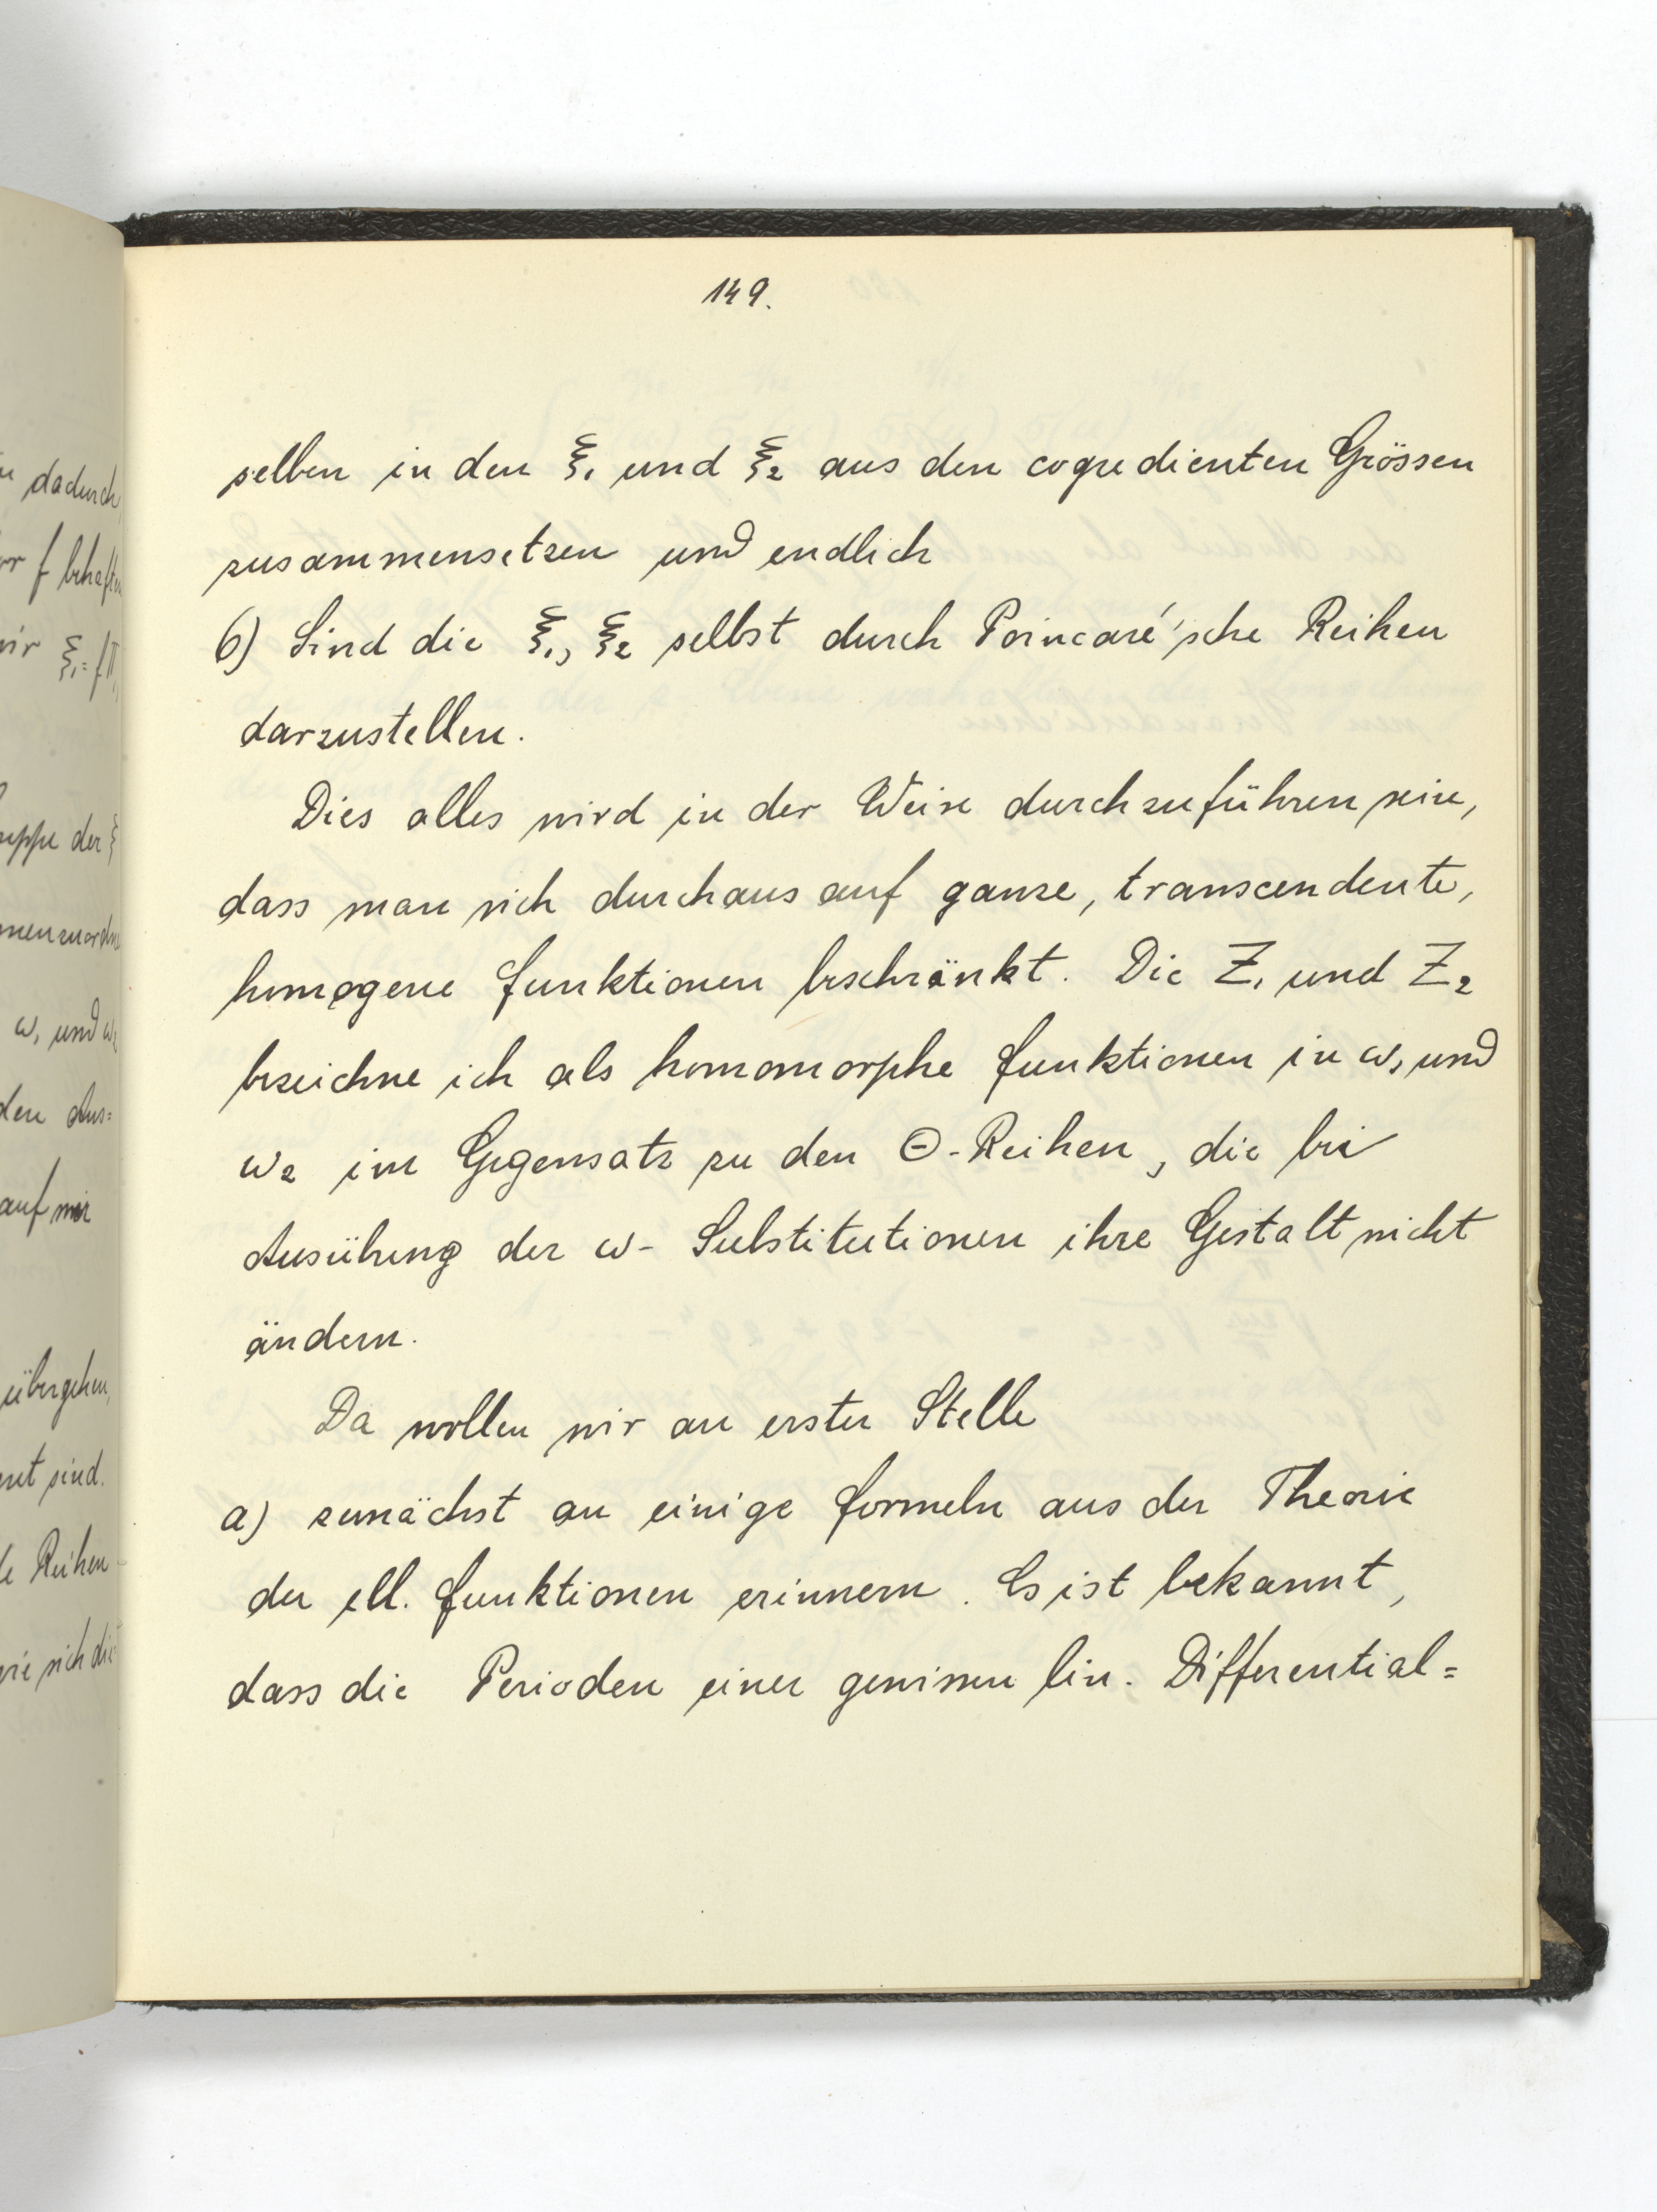 149.
selben in den ξ₁ und ξ₂ aus den cogredienten Grössen
zusammensetzen und endlich
6) Sind die ξ₁, ξ₂ selbst durch Poincaré'sche Reihen
darzustellen.
Dies alles wird in der Weise durchzuführen sein,
dass man sich durchaus auf ganze, transcendente,
homogene Funktionen beschränkt. Die Z₁ und Z₂
bezeichne ich als homomorphe Funktionen in ω₁ und
ω₂ im Gegensatz zu den Θ-Reihen, die bei
Ausübung der ω- Substitutionen ihre Gestalt nicht
ändern.
Da wollen wir an erster Stelle
a) zunächst an einige Formeln aus der Theorie
der ell. Funktionen erinnern. Es ist bekannt,
dass die Perioden einer gewissen lin. Differential=
dadurch
f
ξ₁=
der ξ
ω₁ und ω₂
den Aus=
auf
übergehen,
sind.
Reihen
sich die